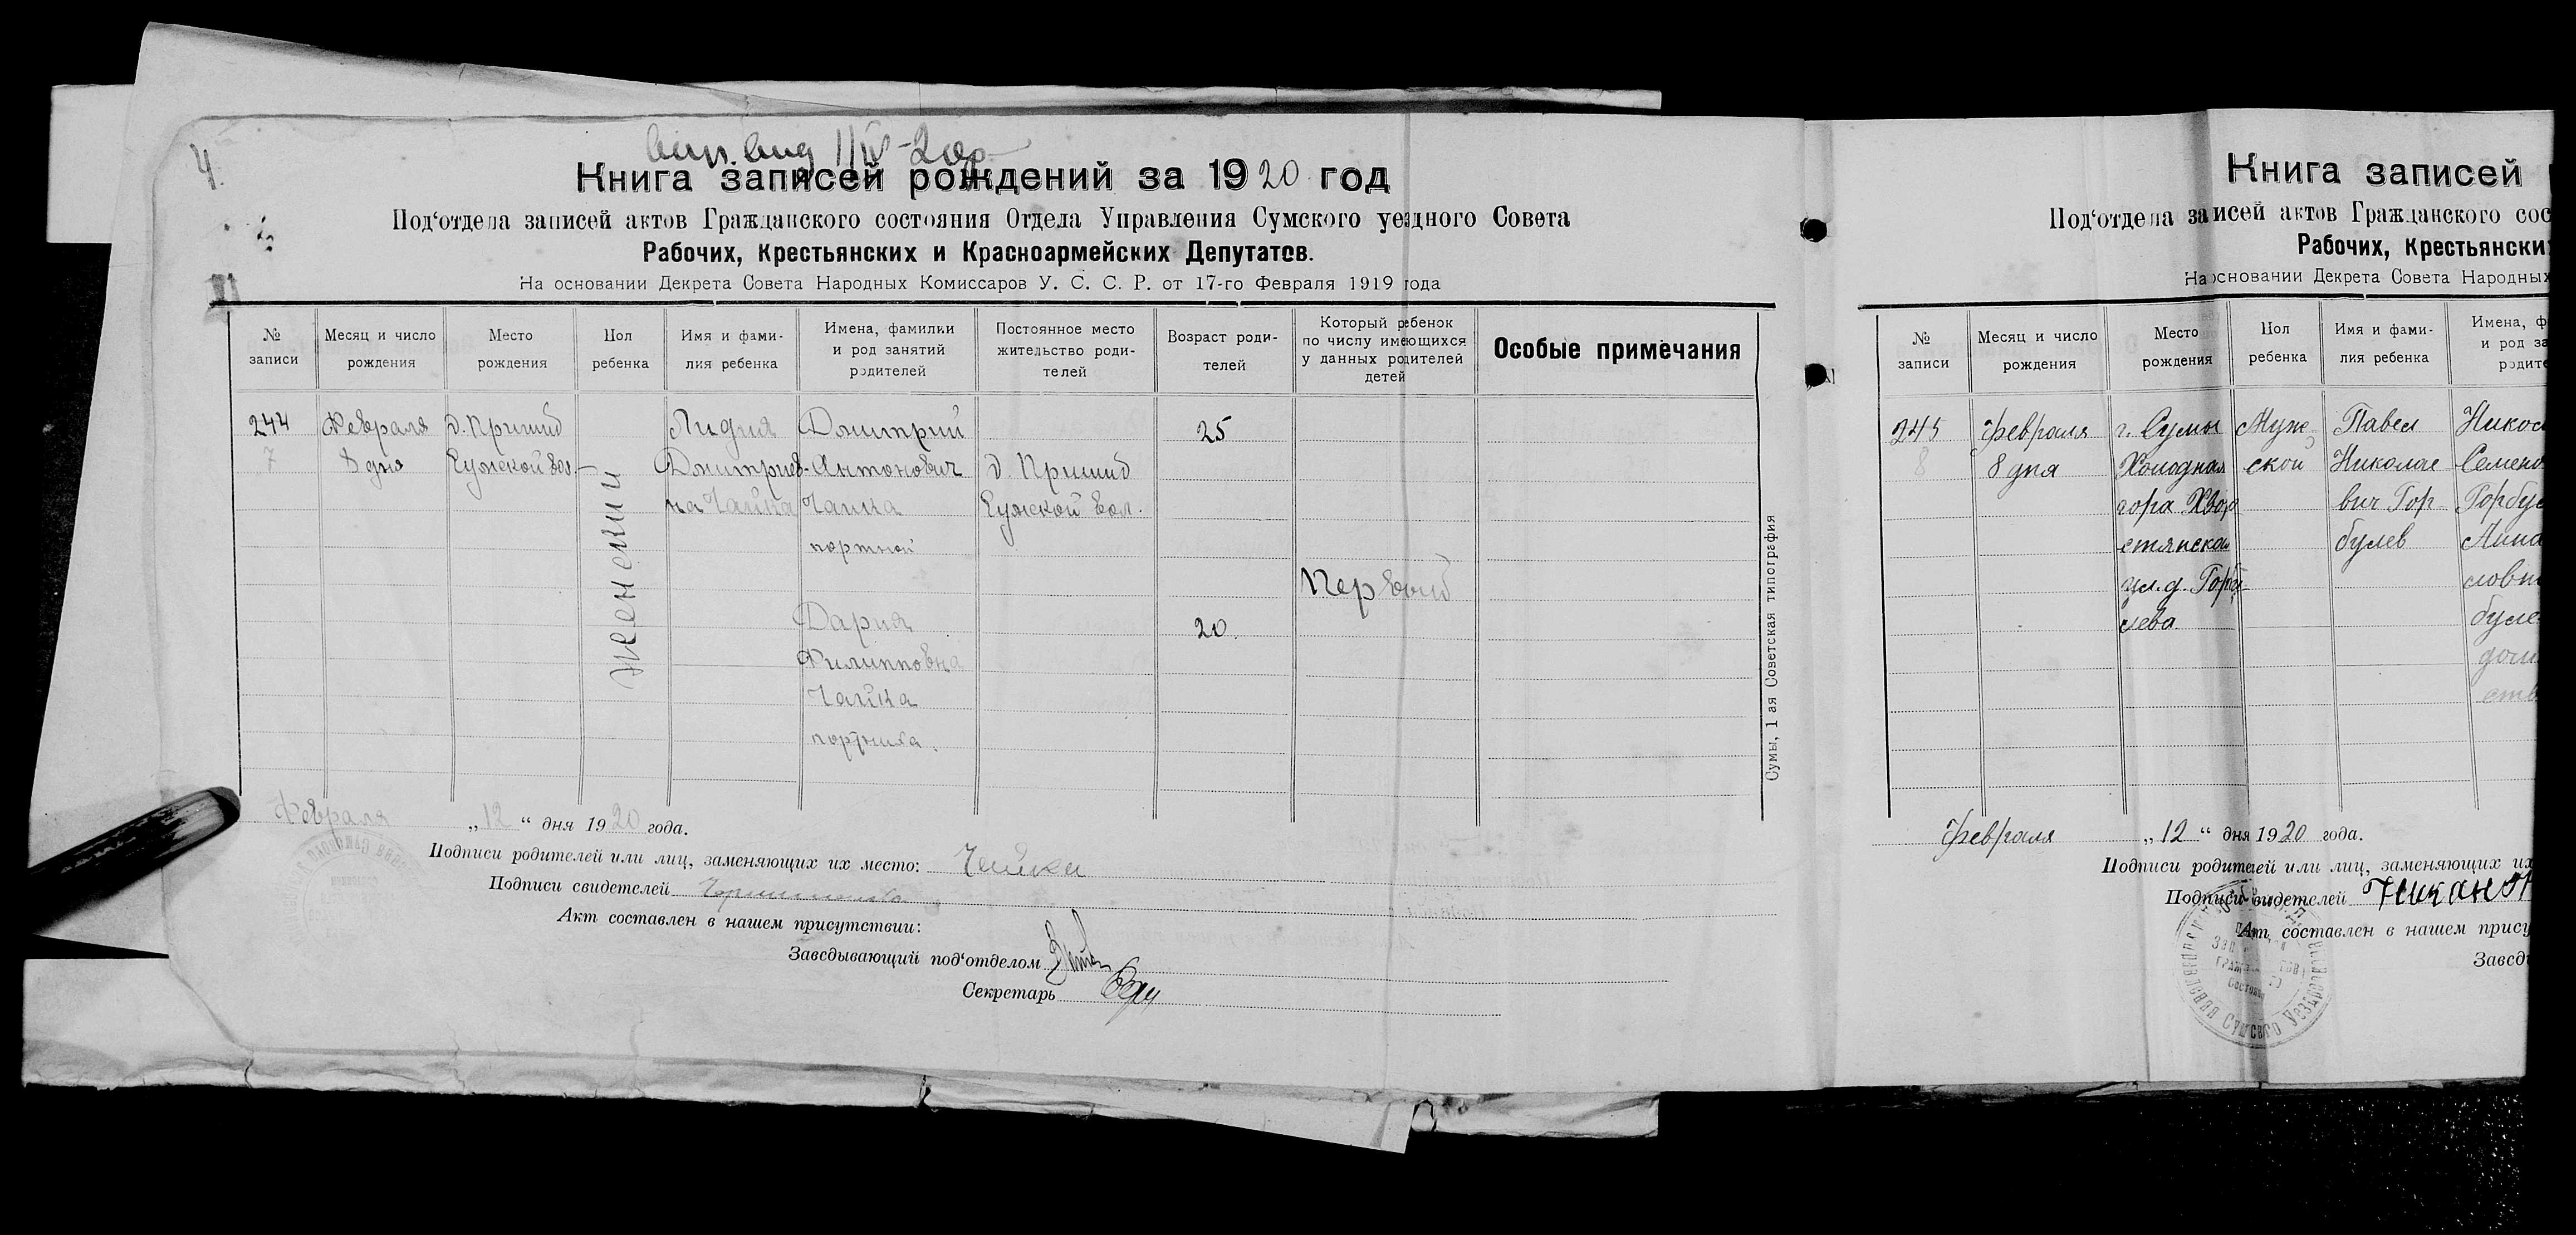 4.
Книга записей рождений за 1920 год
Под‘отдела записей актов Гражданского состояния Отдела Управления Сумского уездного Совета
Рабочих, Крестьянских и Красноармейских Депутатов.
На основании Декрета Совета Народных Комиссаров У. С. С. Р. от 17-го Февраля 1919 года
№ записи
Месяц и число рождения
Место рождения
Пол ребенка
Имя и фами-
лия ребенка
Имена, фамилии
и род занятий
родителей
Постоянное место
жительство роди-
телей
Возраст роди-
телей
Который ребенок
по числу имеющихся
у данных родителей
детей
Особые примечания
244
7
Февраля
8 дня
д. Пришиб
женский
Лидия
Дмитриев-
на Чайка
Дмитрий
Антонович
Чайка
портной
Дария
Филипповна
Чайка
портниха.
д. Пришиб
25
20.
Первый
Сумы, 1 ая Советская типография
Февраля „12“ дня 1920 года.
Подписи родителей или лиц, заменяющих их место: Чайка
Подписи свидетелей
Акт составлен в нашем присутствии:
Заведывающий под‘отделом
Секретарь
Книга записей
Под‘отдела записей актов Гражданского сос
Рабочих, Крестьянских
На основании Декрета Совета Народных
№ записи
Месяц и число рождения
Место рождения
Пол ребенка
Имя и фами-
лия ребенка
Имена, ф
и род за
родите
245
8
Февраля
8 дня
г. Сумы
Холодная
гора
ул. д. Горбу-
лева.
Муж-
ской
Павел
Николае
вич Гор
булев
Никол
Семено
Горбуле
Анна
Февраля „12“ дня 1920 года.
Подписи родителей или лиц, заменяющих их
Подписи свидетелей
Акт составлен в нашем прису
Завед